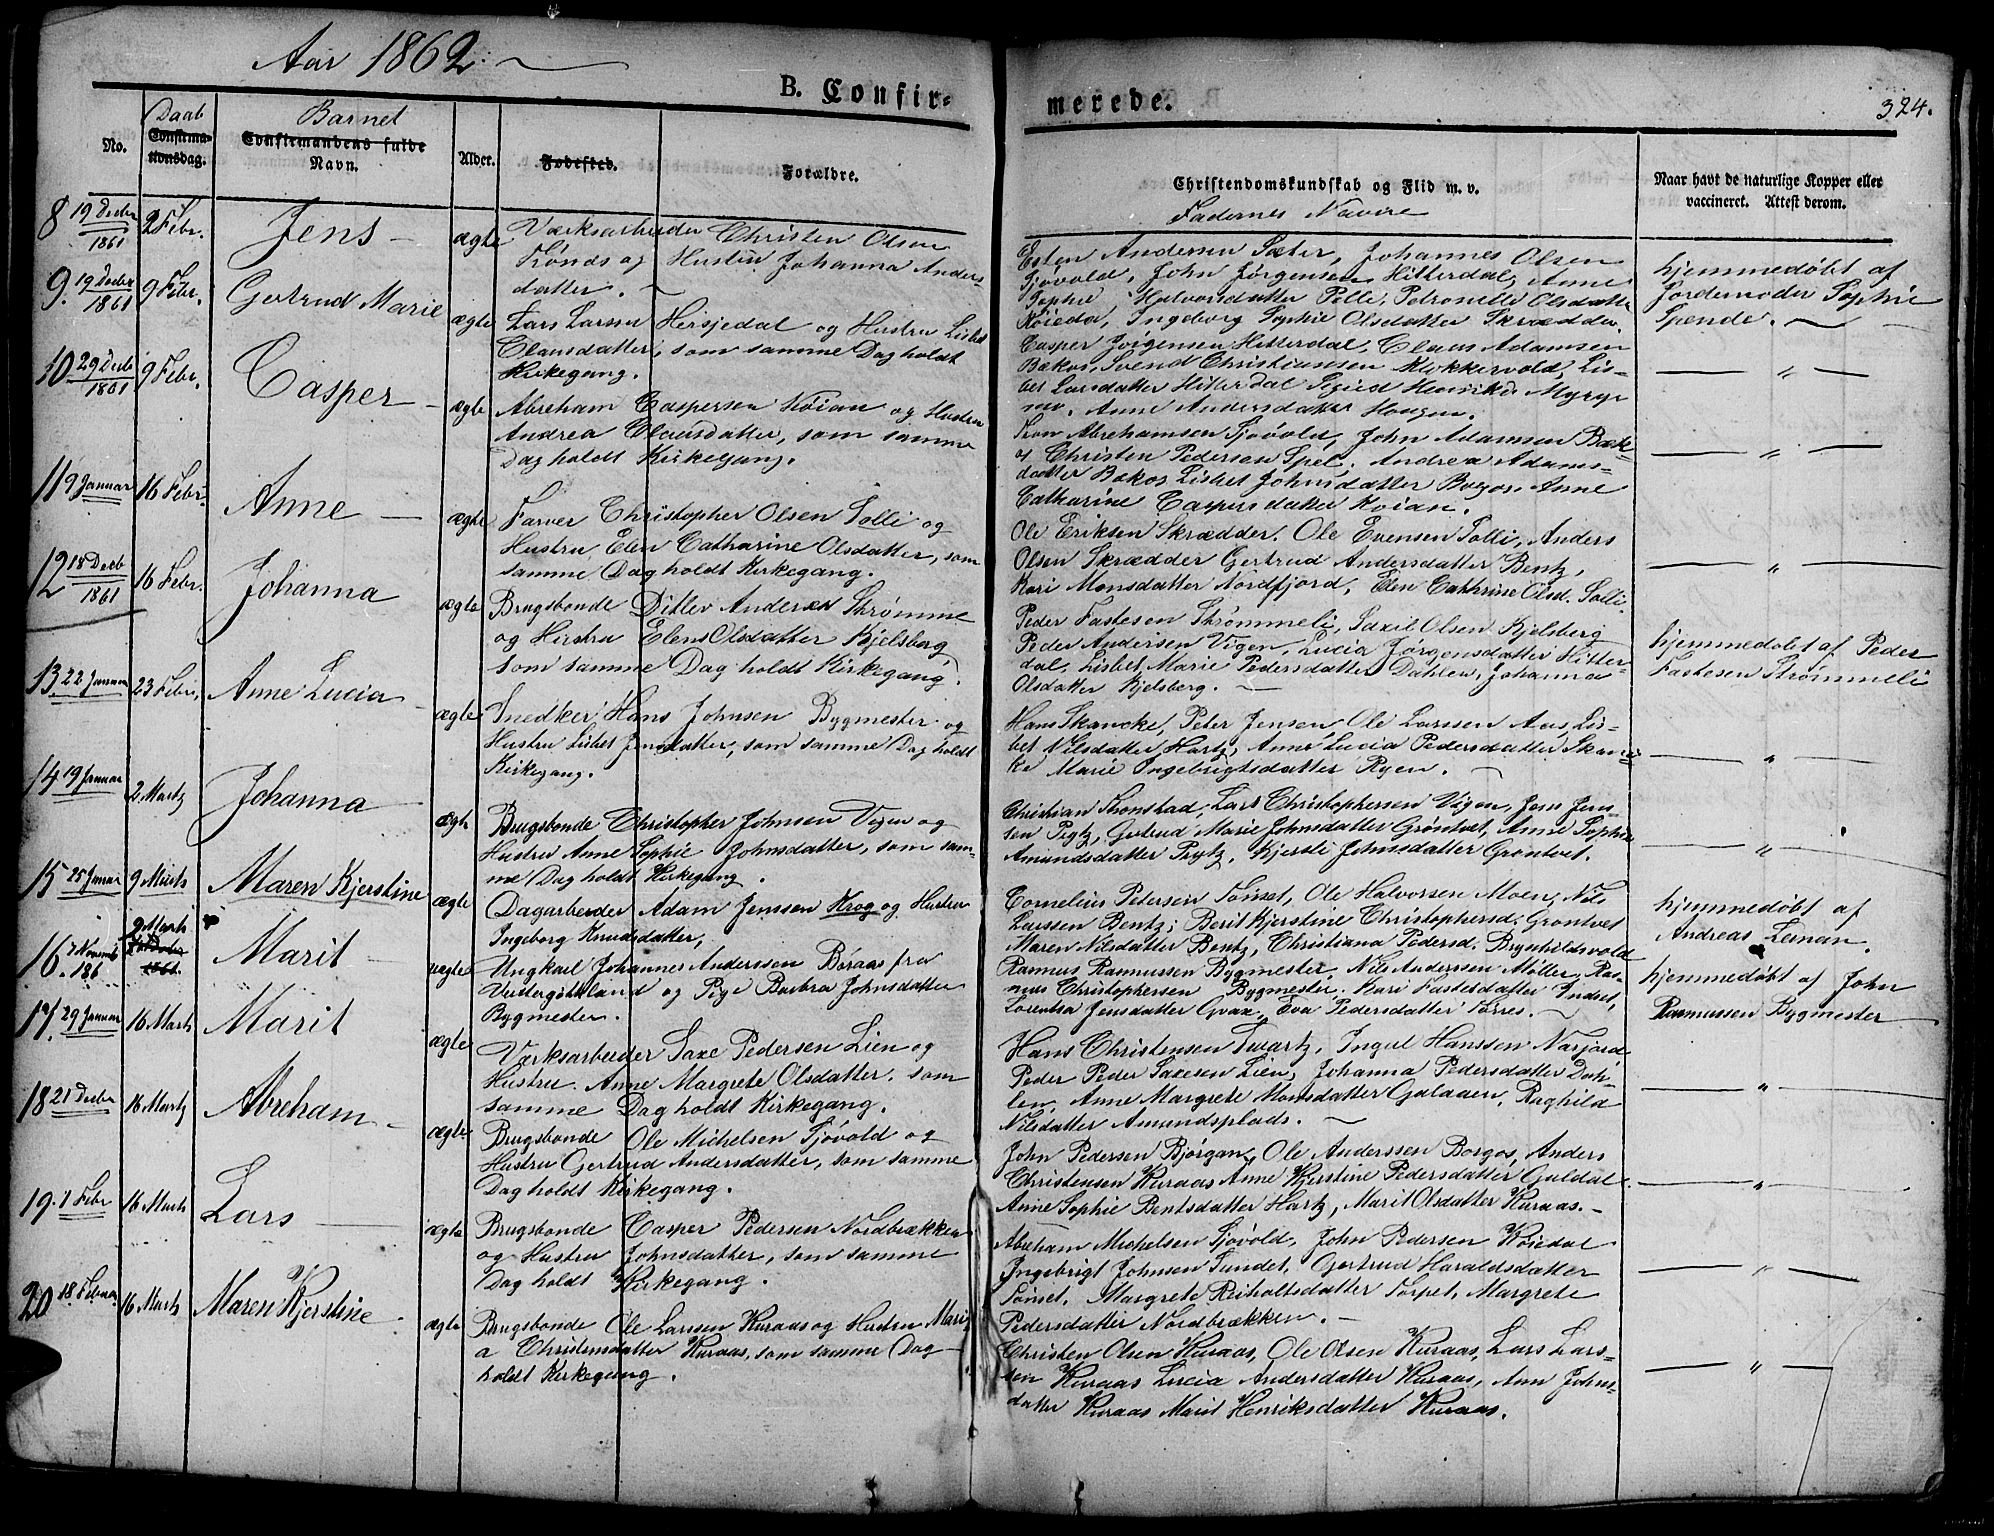 Aar 1862.
B. Confir-
merede.
324.
No.
Daab
Confirma-
tionsdag.
Barnet
Confirmandens fulde
Navn.
Alder.
Fødested.
Forældre.
Christendomskundskab og Flid m. v.
Fadernes Navne
Naar havt de naturlige Kopper eller
vaccineret. Attest derom.
8 19 Decbr 1861
2 Febr.
Jens
ægte
Værksarbeider Christen Olsen
Trønds og Hustru Johanna Anders-
datter.
Esten Andersen Sæter, Johannes Olsen
Sjøvold, John Jørgensen Hitterdal, Anne
Sophie Halvorsdatter Polli, Petronelle Olsdatter
Køieda, Ingeborg Sophie Olsdatter Skrædder.
hjemmedøbt af
Jordemoder Sophie
Spende.
9. 19 Decbr 1861
9 Febr.
Gertrud Marie
ægte
Lars Larsen Hersjedal og Hustru Lisbet
Clausdatter, som samme Dag holdt
Kirkegang.
Casper Jørgensen Hitterdal, Claus Adamsen
Bakos, Svend Christiansen Klokkervold, Lis-
bet Larsdatter Hitterdal Sigrid Henriks Myrp
mo. Anne Andersdatter Hougen.
— " —
10 29 Decbr 1861
9 Febr.
Casper
ægte
Abreham Caspersen Køian og Hustru
Andrea Clausdatter, som samme
Dag holdt Kirkegang.
Abrehamsen Sjøvold, John Adamsen Bak-
os Christen Pedersen Spel, Andrea Adams-
datter Bakos Lisbet Johnsdatter Borgos, Anne
Catharine Caspersdatter Køian.
— " —
11 9 Januar
16 Febr.
Anne
ægte
Farver Christopher Olsen Solli og
Hustru Elen Catharine Olsdatter, som
samme Dag holdt Kirkegang.
Ole Eriksen Skrædder, Ole Evensen Solli, Anders
Olsen Skrædder Gertrud Andersdatter Bentz,
Kari Monsdatter Nordfjord, Elen Cathrine Olsd. Solli.
— " —
12 18 Decb 1861
16 Febr.
Johanna
ægte
Brugsbonde Ditlev Andersen Strømme
og Hustru Elens Olsdatter Kjelsberg
som samme Dag holdt Kirkegang.
Peder Fastesen Strømmeli, Saxil Olsen Kjelsberg
Peder Andersen Vigen, Lucia Jørgensdatter Hitter-
dal, Lisbet Marie Pedersdatter Dahlen, Johanna
Olsdatter Kjelsberg.
hjemmedøbt af Peder
Fastesen Strømmeli
13 22 Januar
23 Febr.
Anne Lucia
ægte
Snedker Hans Johnsen Bygmester og
Hustru Lisbet Jensdatter, som samme Dag holdt
Kirkegang.
Hans Skancke, Peter Jensen Ole Larssen Aas, Lis-
bet Nilsdatter Hartz, Anne Lucia Pedersdatter Skanc-
ke Marie Ingebrigtsdatter Ryen.
— " —
14 19 Januar
2 Martz
Johanna
ægte
Brugsbonde Christopher Johnsen Vigen og
Hustru Anne Sophie Johnsdatter, som sam-
me Dag holdt Kirkegang.
Christian Thonstad, Lars Christophersen Vigen, Jens Jens-
sen Prytz, Gertrud Marie Johnsdatter Grøntvet, Anne Sophie
Amundsdatter Prytz, Kjersti Johnsdatter Grøntvet.
— " —
15 25 Januar
9 Marts
Maren Kjerstine
ægte
Dagarbeider Adam Jenssen Krog og Hustru
Ingeborg Knudsdatter,
Cornelius Petersen Tønset, Ole Halvorsen Moen, Nils
Larssen Bentz; Berit Kjerstine Christophersd. Grøntvet
Maren Nilsdatter Bentz, Christiana Pedersd. Brynhildsvold
hjemmedøbt af
Andreas Leman.
16. 7 Novemb 186
9 Marts
Marit
uægte
Ungkarl Johannes Anderssen Boraas fra
Vestergøthland og Pige Barbra Johnsdatter
Bygmester.
Rasmus Rasmussen Bygmester, Nils Anderssen Møller, Ras-
mus Christophersen Bygmester. Kari Fastesdatter Indset,
Lorentsa Jensdatter Gvax, Eva Pedersdatter Torres.
hjemmedøbt af John
Rasmussen Bygmester
17. 29 Januar
16 Marts
Marit
ægte
Værksarbeider Saxe Pedersen Lien og
Hustru Anne Margrete Olsdatter, som
samme Dag holdt Kirkegang.
Hans Christensen Svartz, Ingul Hanssen Narjord
Peder Peder Saxesen Lien, Johanna Pedersdatter Dah-
len, Anne Margrete Monsdatter Galaaen, Raghild
Nilsdatter Amundsplads.
— " —
18 21 Decbr
16 Martz
Abreham
ægte
Brugsbonde Ole Michelsen Sjøvold og
Hustru Gertrud Andersdatter, som samme
Dag holdt Kirkegang.
John Pedersen Bjørgan, Ole Anderssen Borgos, Anders
Christensen Kuraas Anne Kjerstine Pedersdatter Guldal.
Anne Sophie Bentsdatter Hartz, Marit Olsdatter Kuraas.
— " —
19. 1 Febr
16 Marts
Lars
ægte
Brugsbonde Casper Pedersen Nordbrækken
og Hustru Johnsdatter, som samme
Dag holdt Kirkegang.
Abreham Michelsen Sjøvold, John Pedersen Køiedal
Ingebrigt Johnsen Sundet, Gertrud Haraldsdatter
Tønset, Margrete Reiholtsdatter Torpet, Margrete
Pedersdatter Nordbrækken.
— " —
20 18. Februar
16 Martz
Maren Kjerstine
ægte
Brugsbonde Ole Larssen Kuraas og Hustru Mari-
a Christensdatter Kuraas, som samme Dag
holdt Kirkegang.
Christen Olsen Kuraas, Ole Olsen Kuraas, Lars Lars-
sen Kuraas Lucia Andersdatter Kuraas, Ann Johns-
datter Kuraas Marit Henriksdatter Kuraas.
— " —